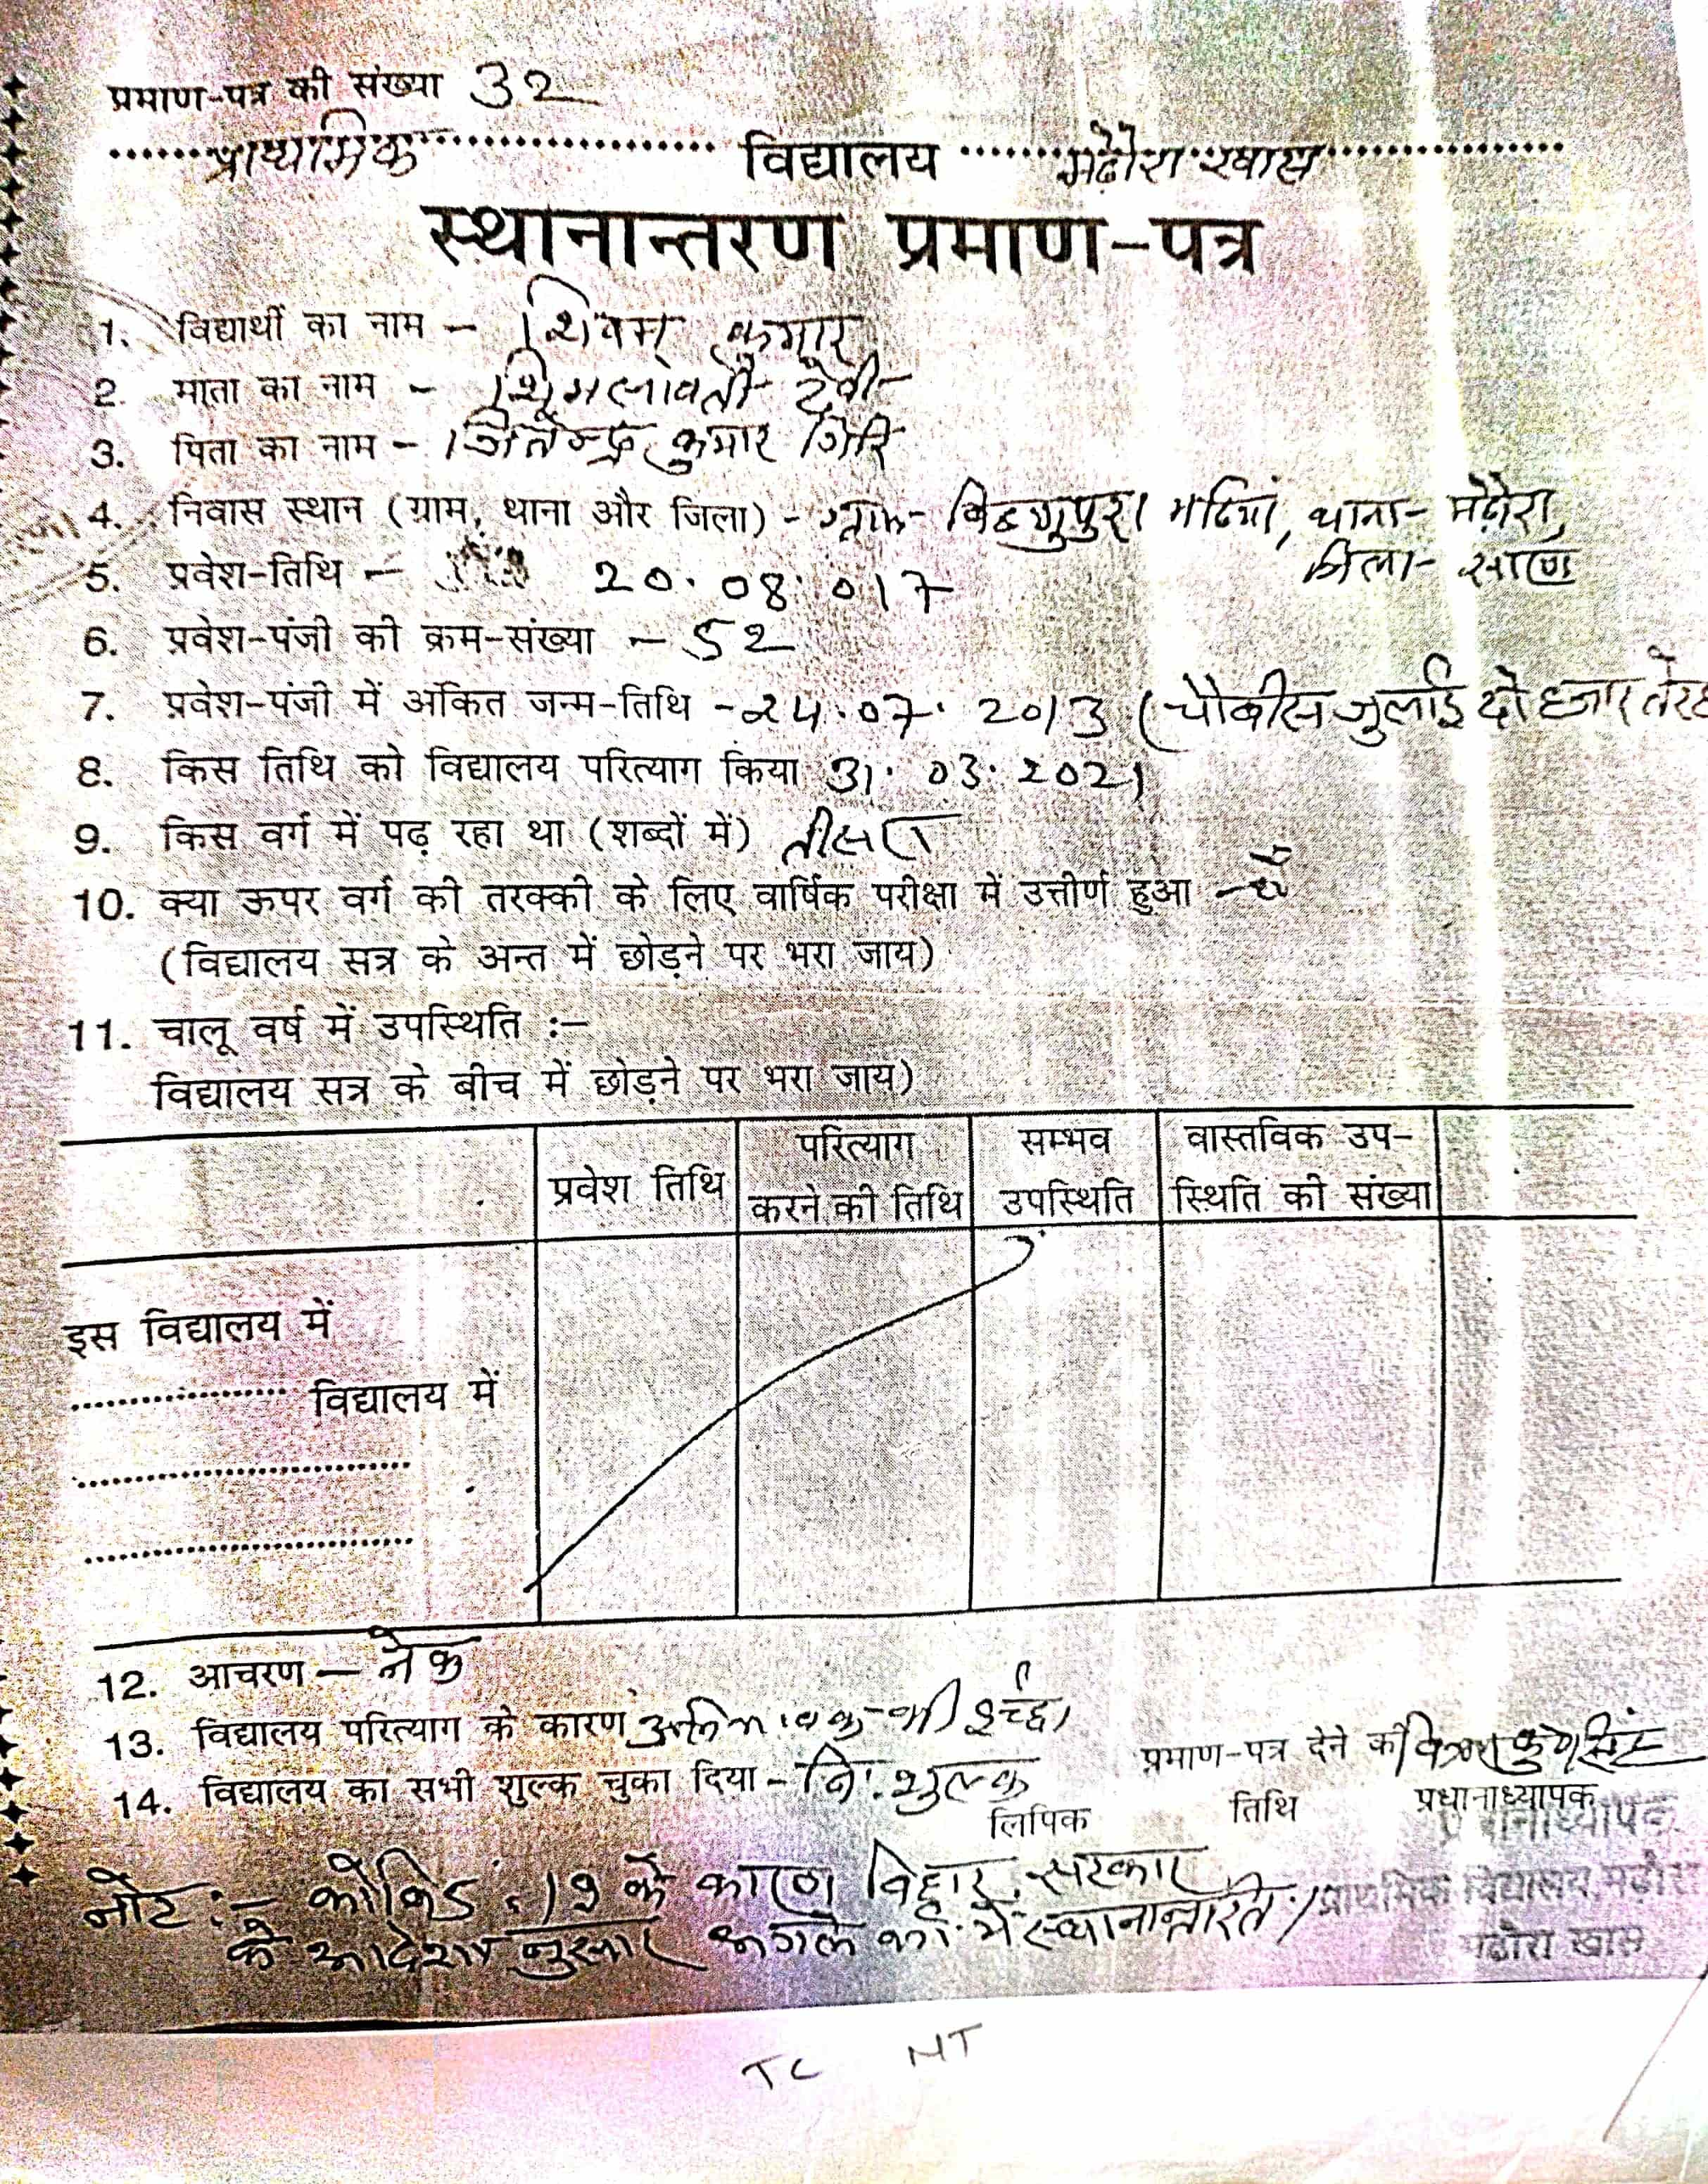 प्रमाण-पत्र की संख्या 32
प्राथमिक विद्यालय मढ़ौरा खास
स्थानान्तरण प्रमाण-पत्र
1. विद्यार्थी का नाम - शिवम् कुमार
2. माता का नाम - देवी
3. पिता का नाम - जितेन्द्र कुमार गिरि
4. निवास स्थान (ग्राम, थाना और जिला) - ग्राम- थाना- मढ़ौरा,
जिला- सारण
5. प्रवेश-तिथि - 20.08.017
6. प्रवेश-पंजी की क्रम-संख्या - 52
7. प्रवेश-पंजी में अंकित जन्म-तिथि - 24.07.2013 (चौबीस जुलाई दो हजार तेरह
8. किस तिथि को विद्यालय परित्याग किया 31.03.2021
9. किस वर्ग में पढ़ रहा था (शब्दों में) तीसरा
10. क्या ऊपर वर्ग की तरक्की के लिए वार्षिक परीक्षा में उत्तीर्ण हुआ -
(विद्यालय सत्र के अन्त में छोड़ने पर भरा जाय)
11. चालू वर्ष में उपस्थिति :-
विद्यालय सत्र के बीच में छोड़ने पर भरा जाय)
प्रवेश तिथि परित्याग करने की तिथि सम्भव उपस्थिति वास्तविक उप-स्थिति की संख्या
इस विद्यालय में
विद्यालय में
12. आचरण - नेक
13. विद्यालय परित्याग के कारण अभिभावक की इच्छा
14. विद्यालय का सभी शुल्क चुका दिया - नि:शुल्क
प्रमाण-पत्र देने की
लिपिक तिथि प्रधानाध्यापक
प्रधानाध्यापक
प्राथमिक विद्यालय, मढ़ौरा
मढ़ौरा खास
नोट :- कोविड-19 के कारण बिहार सरकार
के आदेशानुसार अगले वर्ग में स्थानान्तरित।
TC NT